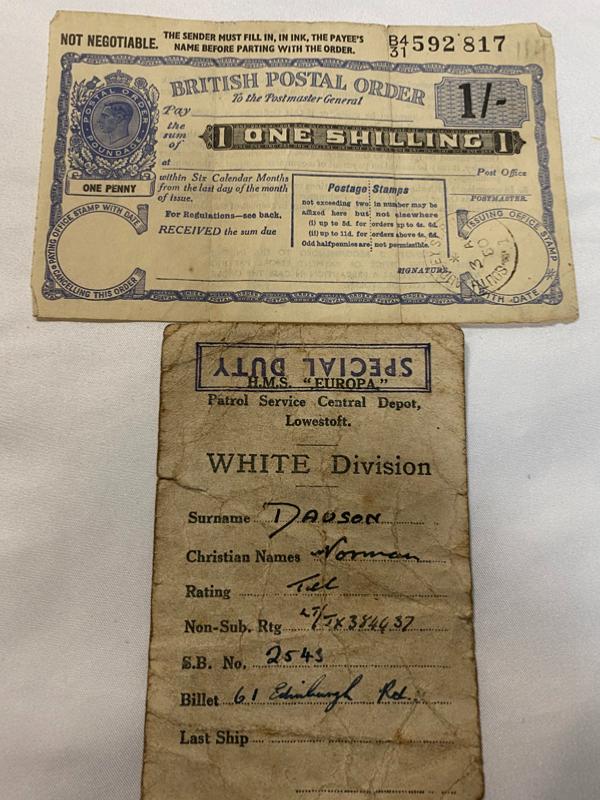 NOT NEGOTIABLE.
THE SENDER MUST FILL IN, IN INK, THE PAYEE'S
NAME BEFORE PARTING WITH THE ORDER.
B4/31 592 817
BRITISH POSTAL ORDER
To the Postmaster General
1/-
POSTAL ORDER
POUNDAGE
ONE PENNY
Pay
the
sum
of
1 ONE SHILLING 1
at
Post Office
within Six Calendar Months
from the last day of the month
of issue.
POSTMASTER.
For Regulations—see back.
RECEIVED the sum due
Postage Stamps
not exceeding two in number may be
affixed here but not elsewhere
(i) up to 5d. for orders up to 4s. 6d.
(ii) up to 11d. for orders above 4s. 6d.
Odd halfpennies are not permissible.
SIGNATURE
PAYING OFFICE STAMP WITH DATE
CANCELLING THIS ORDER
ISSUING OFFICE STAMP
WITH DATE
SPECIAL DUTY
H.M.S. "EUROPA,"
Patrol Service Central Depot,
Lowestoft.
WHITE Division
Surname DAWSON
Christian Names Norman
Rating Tel
Non-Sub. Rtg LT/JX384637
S.B. No. 2543
Billet 61 Edinburgh Rd.
Last Ship